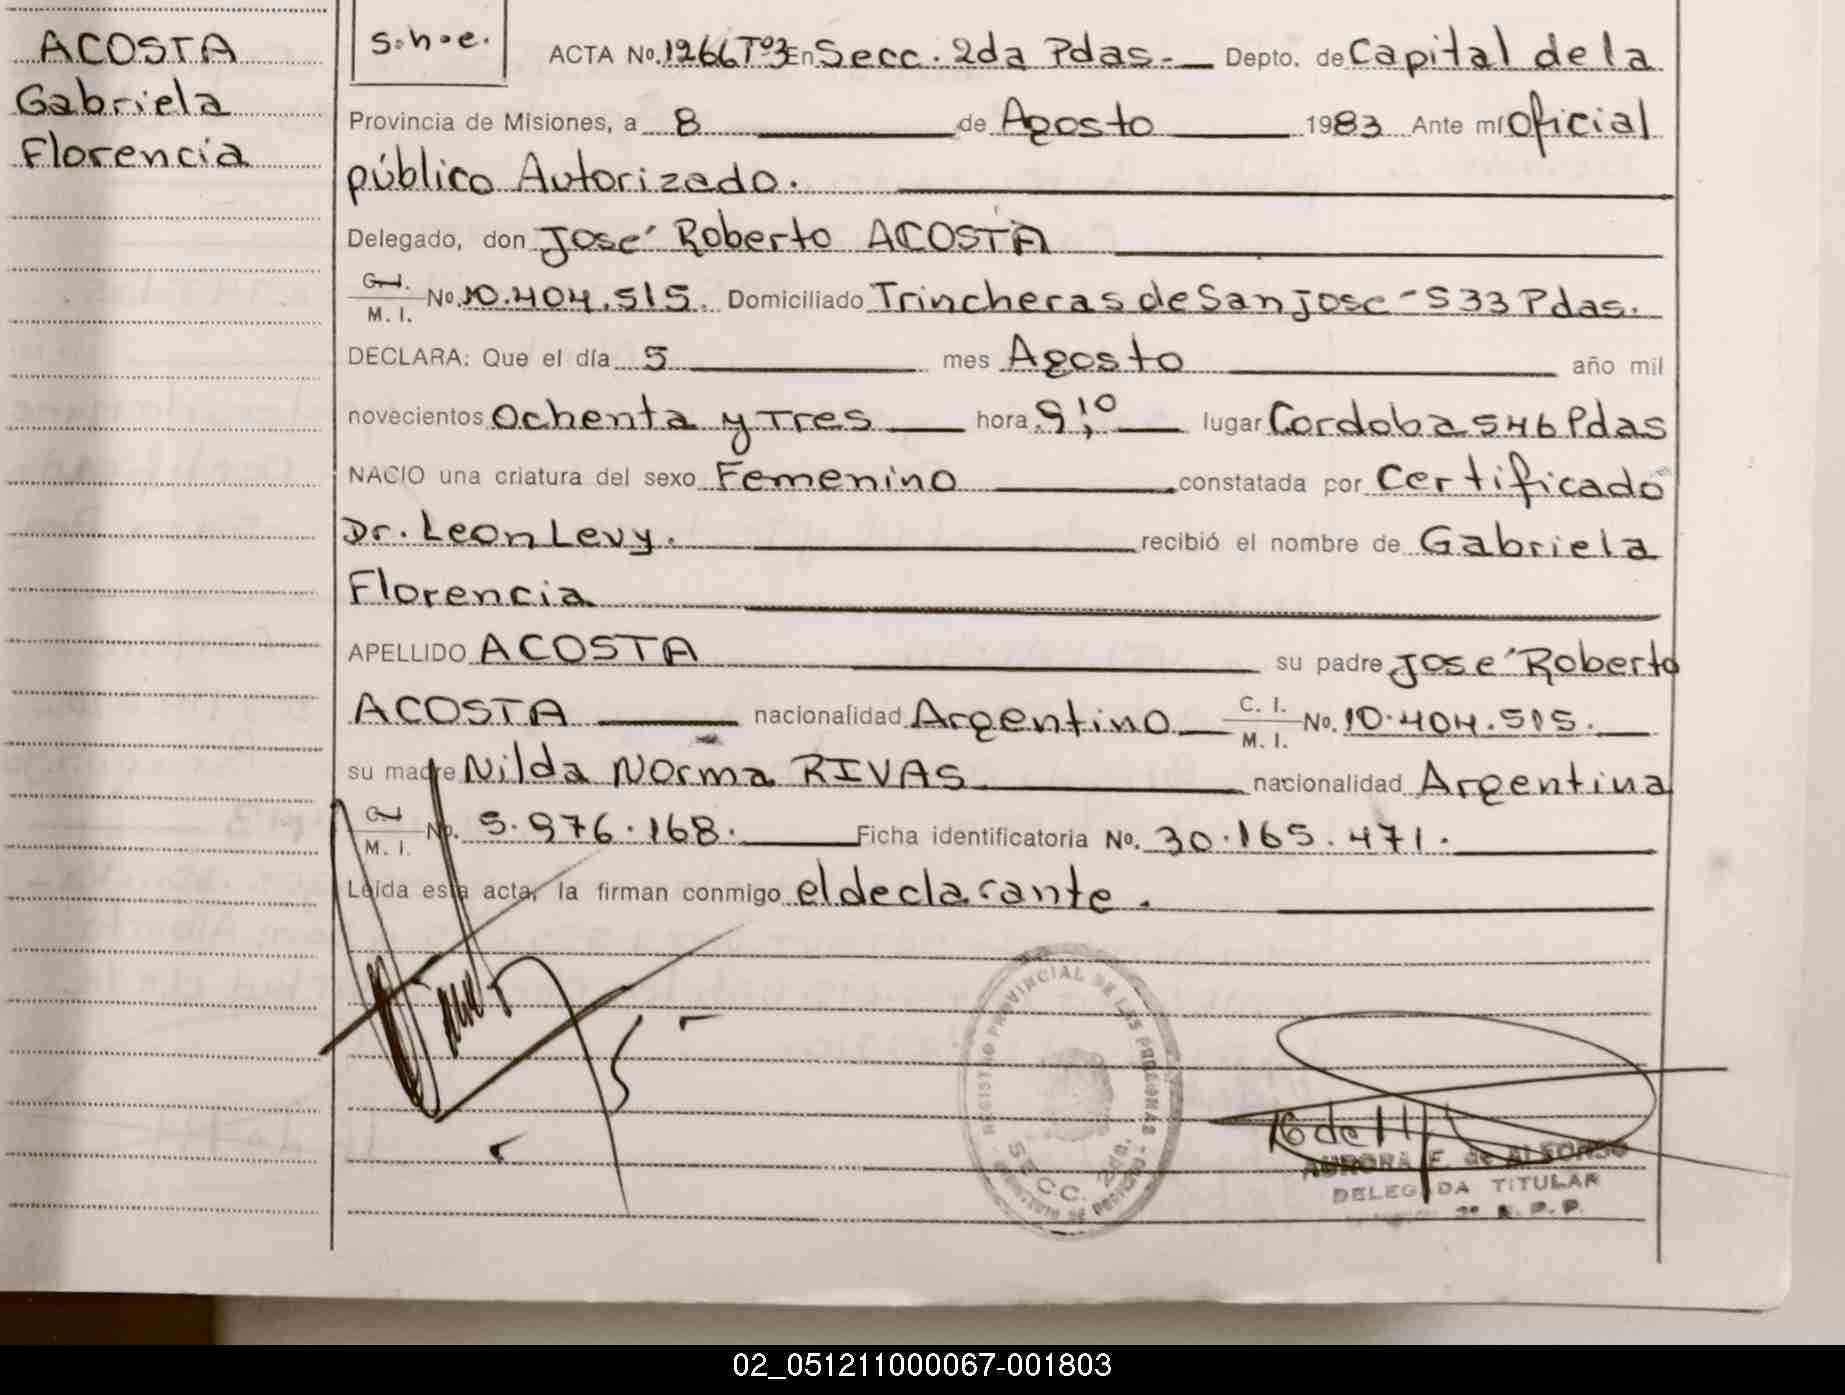 ACOSTA
Gabriela
Florencia
s.h.e.
ACTA No. 1266 Tº3 En Secc. 2da Pdas.- Depto. de Capital de la
Provincia de Misiones, a 8 de Agosto 1983 Ante mí Oficial
público Autorizado.
Delegado, don José Roberto ACOSTA
C.I. M. I. No. 10.404.515. Domiciliado Trincheras de San Jose - 533 Pdas.
DECLARA: Que el día 5 mes Agosto año mil
novecientos Ochenta y Tres hora 9,10 lugar Cordoba 546 Pdas
NACIO una criatura del sexo Femenino constatada por Certificado
Dr. Leon Levy. recibió el nombre de Gabriela
Florencia
APELLIDO ACOSTA su padre José Roberto
ACOSTA nacionalidad Argentino C. I. M. I. No. 10.404.515.
su madre Nilda Norma RIVAS nacionalidad Argentina
C.I. M. I. No. 5.976.168. Ficha identificatoria No. 30.165.471.
Leída esta acta, la firman conmigo el declarante.
REGISTRO PROVINCIAL DE LAS PERSONAS
SECC. 2da.
AURORA F. de ALFONSO
DELEGADA TITULAR
R. P. P.
02_051211000067-001803